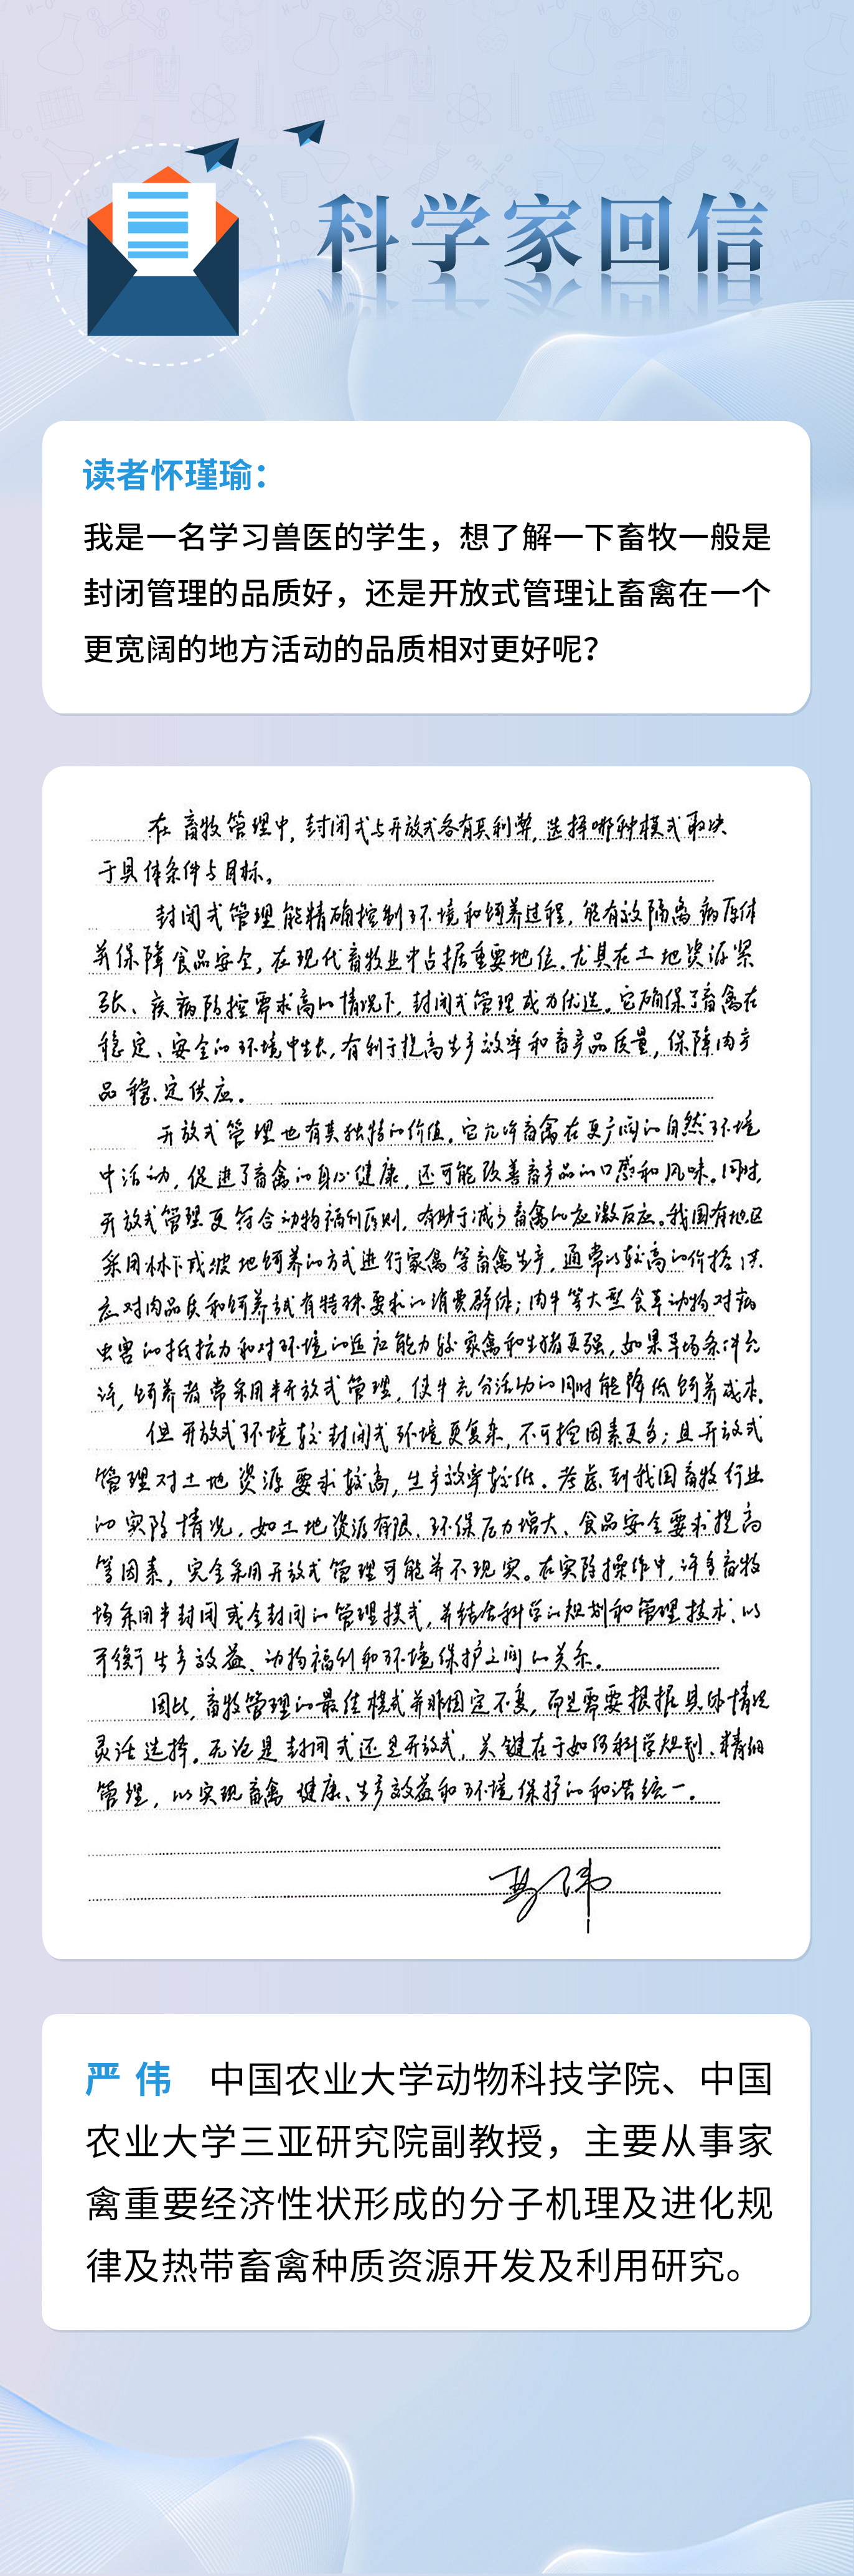 科学家回信
读者怀瑾瑜：
我是一名学习兽医的学生，想了解一下畜牧一般是
封闭管理的品质好，还是开放式管理让畜禽在一个
更宽阔的地方活动的品质相对更好呢？
在畜牧管理中，封闭式与开放式各有其利弊，选择哪种模式取决
于具体条件与目标。
封闭式管理能精确控制环境和饲养过程，能有效隔离病原体
并保障食品安全，在现代畜牧业中占据重要地位。尤其在土地资源紧
张、疾病防控要求高的情况下，封闭式管理成为优选。它确保了畜禽在
稳定、安全的环境中生长，有利于提高生产效率和畜产品质量，保障肉产
品稳定供应。
开放式管理也有其独特的价值。它允许畜禽在更广阔的自然环境
中活动，促进了畜禽的身心健康，还可能改善畜产品的口感和风味。同时，
开放式管理更符合动物福利原则，有助于减少畜禽的应激反应。我国有地区
采用林下或坡地饲养的方式进行家禽等畜禽生产，通常以较高的价格供
应对肉品质和饲养方式有特殊要求的消费群体；肉牛等大型食草动物对病
虫害的抵抗力和对环境的适应能力较家禽和生猪更强，如果草场条件允
许，饲养者常采用半开放式管理，使牛充分活动的同时能降低饲养成本。
但开放式环境较封闭式环境更复杂，不可控因素更多；且开放式
管理对土地资源要求较高，生产效率较低。考虑到我国畜牧行业
的实际情况，如土地资源有限、环保压力增大、食品安全要求提高
等因素，完全采用开放式管理可能并不现实。在实际操作中，许多畜牧
场采用半封闭或全封闭的管理模式，并结合科学的规划和管理技术，以
平衡生产效益、动物福利和环境保护之间的关系。
因此，畜牧管理的最佳模式并非固定不变，而是需要根据具体情况
灵活选择。无论是封闭式还是开放式，关键在于如何科学规划、精细
管理，以实现畜禽健康、生产效益和环境保护的和谐统一。
严伟
严 伟　中国农业大学动物科技学院、中国
农业大学三亚研究院副教授，主要从事家
禽重要经济性状形成的分子机理及进化规
律及热带畜禽种质资源开发及利用研究。